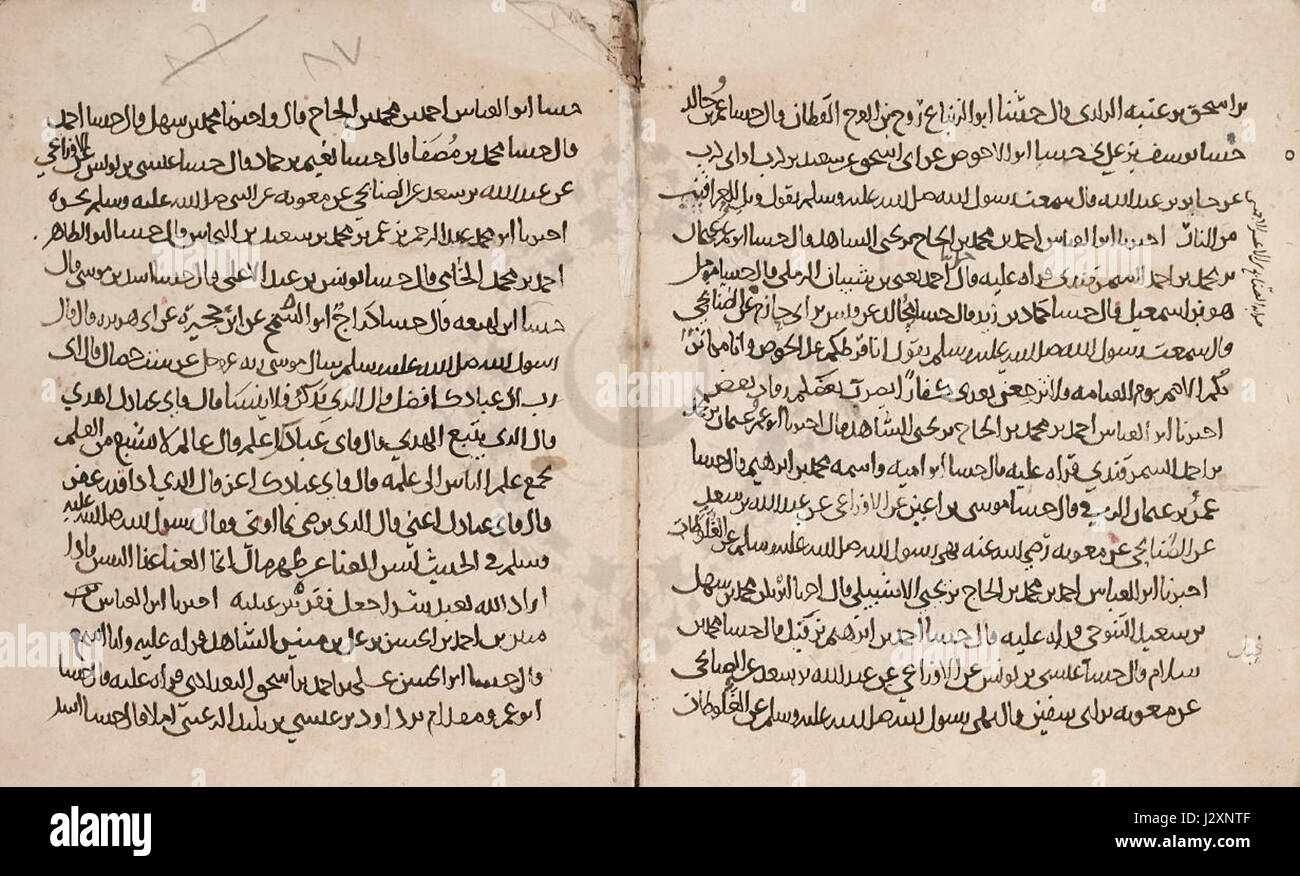 بن اسحق بن عتبه الرازي قال حدثنا ابو الزنباع روح بن الفرج القطان قال حدثنا عمرو بن خالد
حدثنا يوسف بن عدي حدثنا ابو الاحوص عن ابي اسحق عن سعيد بن ابي كرب
عن جابر بن عبد الله قال سمعت رسول الله صلى الله عليه وسلم يقول ويل للعراقيب
من النار اخبرنا ابو العباس احمد بن محمد بن الحاج بن يحيى الشاهد قال حدثنا ابو عمر عثمان
بن محمد بن احمد السمرقندي قراه عليه قال احمد بن شيبان الرملي قال حدثنا مومل
هو بن اسمعيل قال حدثنا حماد بن زيد قال حدثنا مجالد عن قيس بن ابي حازم عن الصنابحي
قال سمعت رسول الله صلى الله عليه وسلم يقول انا فرطكم على الحوض وانا مكاثر
بكم الامم يوم القيامه فلا ترجعن بعدي كفارا يضرب بعضكم رقاب بعض
اخبرنا ابو العباس احمد بن محمد بن الحاج بن يحيى الشاهد قال اخبرنا ابو عمر عثمان بن محمد
بن احمد السمرقندي قراه عليه قال حدثنا ابو اميه واسمه محمد بن ابرهيم قال حدثنا
عمرو بن عثمان قال حدثنا موسى بن اعين عن الاوزاعي عن عبد الله بن سعد
عن الصنابحي عن معويه رضي الله عنه نهى رسول الله صلى الله عليه وسلم عن الغلوطات
اخبرنا ابو العباس احمد بن محمد بن الحاج بن يحيى الاشبيلي قال محمد بن سهل
بن سعيد التنوخي قراه عليه قال حدثنا احمد بن ابرهيم بن قال حدثنا محمد بن
سلام قال حدثنا عيسى بن يونس عن الاوزاعي عن عبد الله بن سعد عن الصنابحي
عن معويه بن ابي سفين قال نهى رسول الله صلى الله عليه وسلم عن الغلوطات
٨٧
حدثنا ابو العباس احمد بن محمد بن الحاج قال واخبرنا محمد بن سهل قال حدثنا احمد
قال حدثنا محمد بن مصفا قال حدثنا نعيم بن حماد قال حدثنا عيسى بن يونس عن الاوزاعي
عن عبد الله بن سعد عن الصنابحي عن معويه عن النبي صلى الله عليه وسلم بنحوه
اخبرنا ابو محمد عبد الرحمن بن عمر بن محمد بن سعيد بن النحاس قال حدثنا ابو الطاهر
احمد بن محمد الخامي قال حدثنا يونس بن عبد الاعلى قال حدثنا اسد بن موسى قال
حدثنا ابن لهيعه قال حدثنا دراج ابو السمح عن ابن حجيرة عن ابي هريره قال قال
رسول الله صلى الله عليه وسلم سال موسى ربه عز وجل عن ست خصال قال اي
رب اي عبادك افضل قال الذي يذكر فلا ينسا قال فاي عبادك اهدى
قال الذي يتبع الهدي قال فاي عبادك اعلم قال عالم لا يشبع من العلم
يجمع علم الناس الى علمه قال فاي عبادك اعز قال الذي اذا قدر عفى
قال فاي عبادك اغنى قال الذي يرضى بما اوتي فقال رسول الله صلى الله عليه
وسلم في الحديث ليس الغنا عن ظهر مال انما الغنا غنا النفس فاذا
اراد الله بعبد شرا جعل فقره بين عينيه اخبرنا ابو العباس
منير بن احمد بن الحسن بن علي بن منير الشاهد قراه عليه وانا اسمع
قال حدثنا ابو الحسن علي بن احمد بن اسحق البغدادي قراه عليه قال حدثنا
ابو عمرو مقدام بن داود بن عيسى بن تليد الرعيني املا قال حدثنا اسد
alamy stock photo
J2XNTF
www.alamy.com